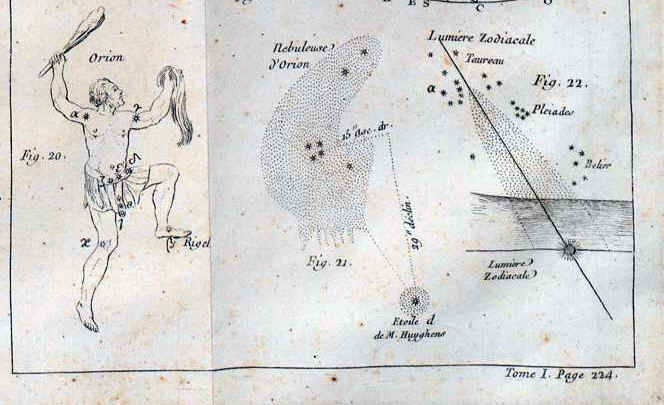 Orion
Fig. 20.
α
γ
ϰ
β
Rigel
Nebuleuse
d'Orion
15" asc. dr.
29" déclin.
Fig. 21.
Etoile d
de M. Huyghens
Lumiere Zodiacale
Taureau
Fig. 22.
α
Pleiades
Belier
Lumiere
Zodiacale
Tome I. Page 224.